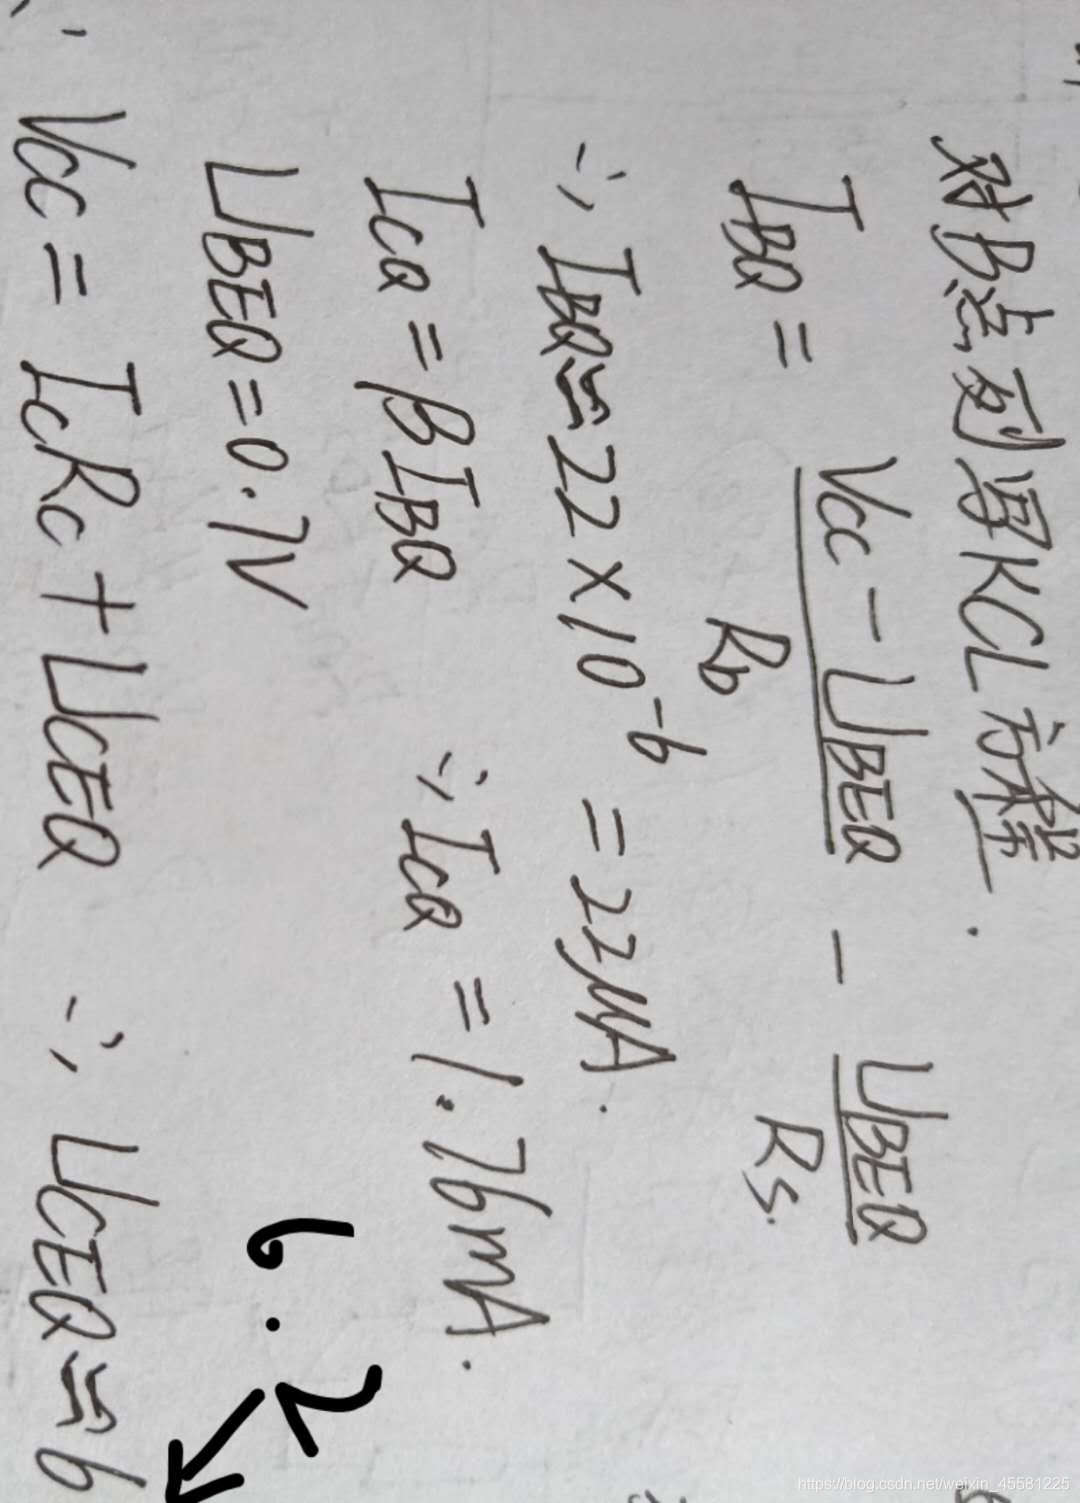 对B点列写KCL方程.
I_BQ = (V_CC - U_BEQ)/R_b - U_BEQ/R_s.
∴ I_BQ ≈ 22×10^-6 = 22μA.
I_CQ = βI_BQ ∴ I_CQ = 1.76mA.
U_BEQ = 0.7V
6.2
V_CC = I_C R_C + U_CEQ ∴ U_CEQ ≈ 6
https://blog.csdn.net/weixin_45581225